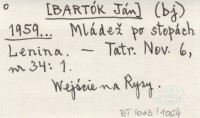 o [BARTÓK Ján] (bj)
1959... Mládež po stopách
Lenina. – Tatr. Nov. 6,
nr 34: 1.
Wejście na Rysy.
BT 1003/1964